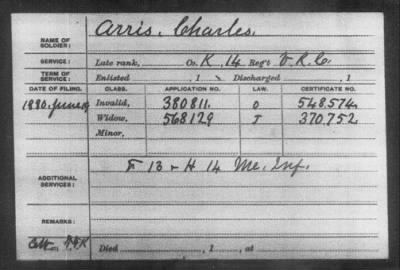 NAME OF SOLDIER: Arris, Charles.
SERVICE: Late rank, Co. K, 14 Reg't V.R.C.
TERM OF SERVICE: Enlisted , 1 Discharged , 1
DATE OF FILING. CLASS. APPLICATION NO. LAW. CERTIFICATE NO.
1890, June 19 Invalid, 380811. O 548,574.
Widow, 568129 T 370,752
Minor,
ADDITIONAL SERVICES: F 13 & H 14 Me. Inf.
REMARKS:
Died , 1 , at